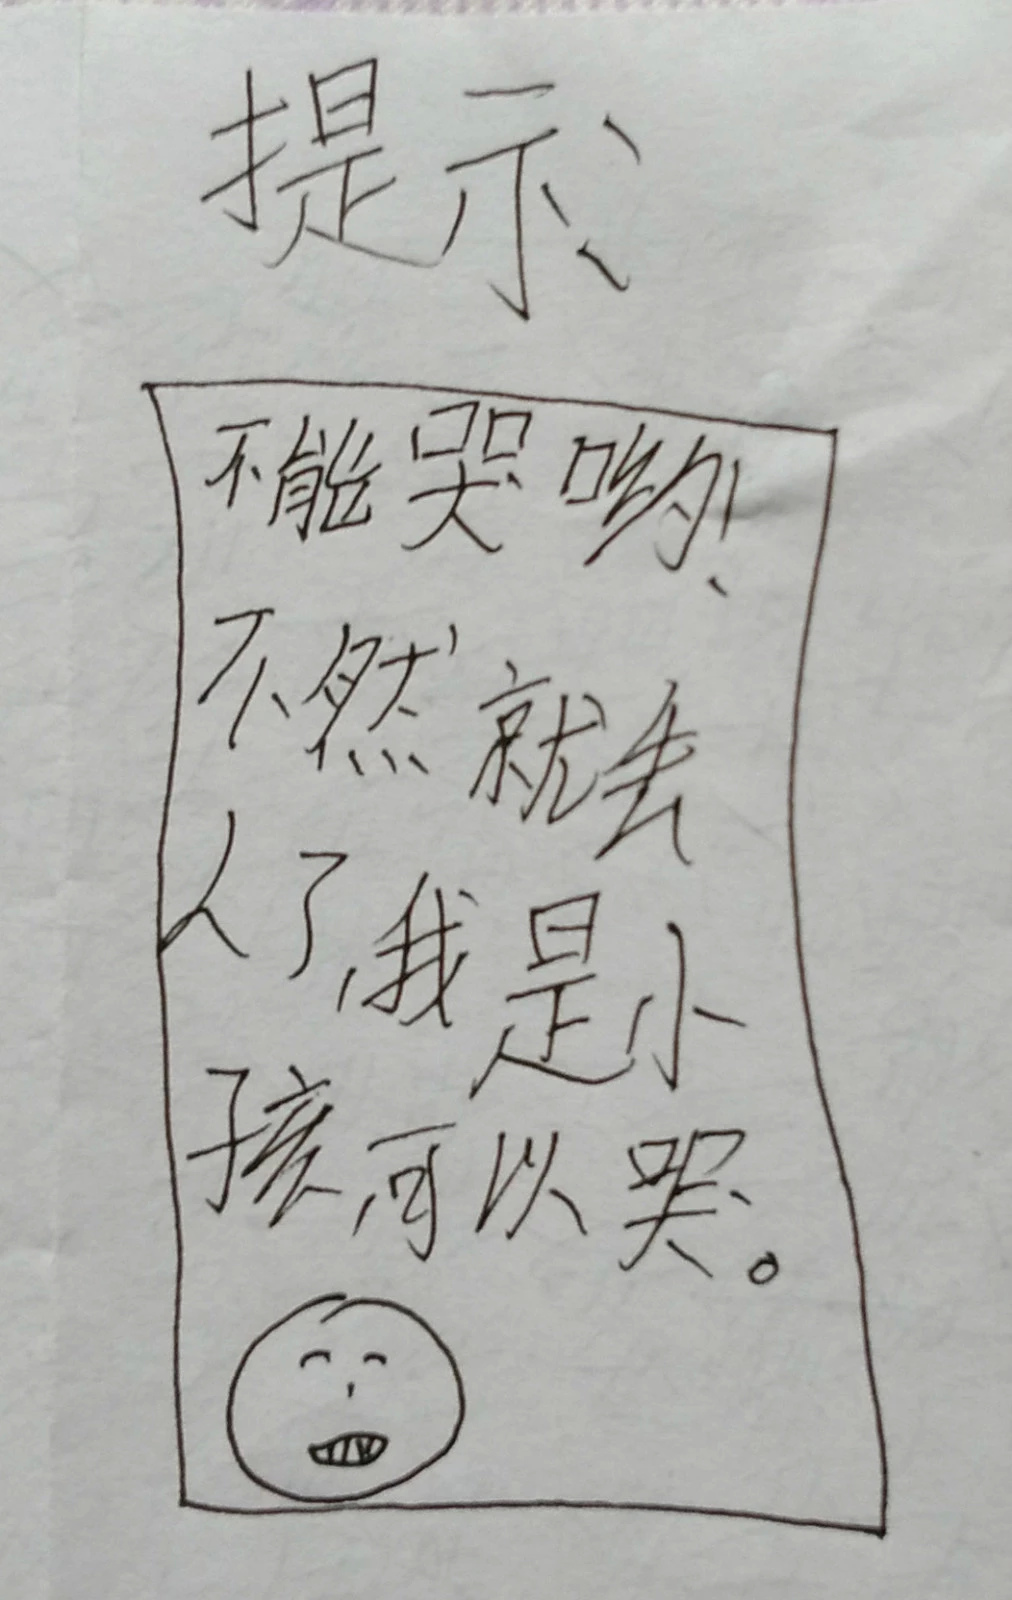 提示:
不能哭哟!
不然就丢
人了,我是小
孩,可以哭。